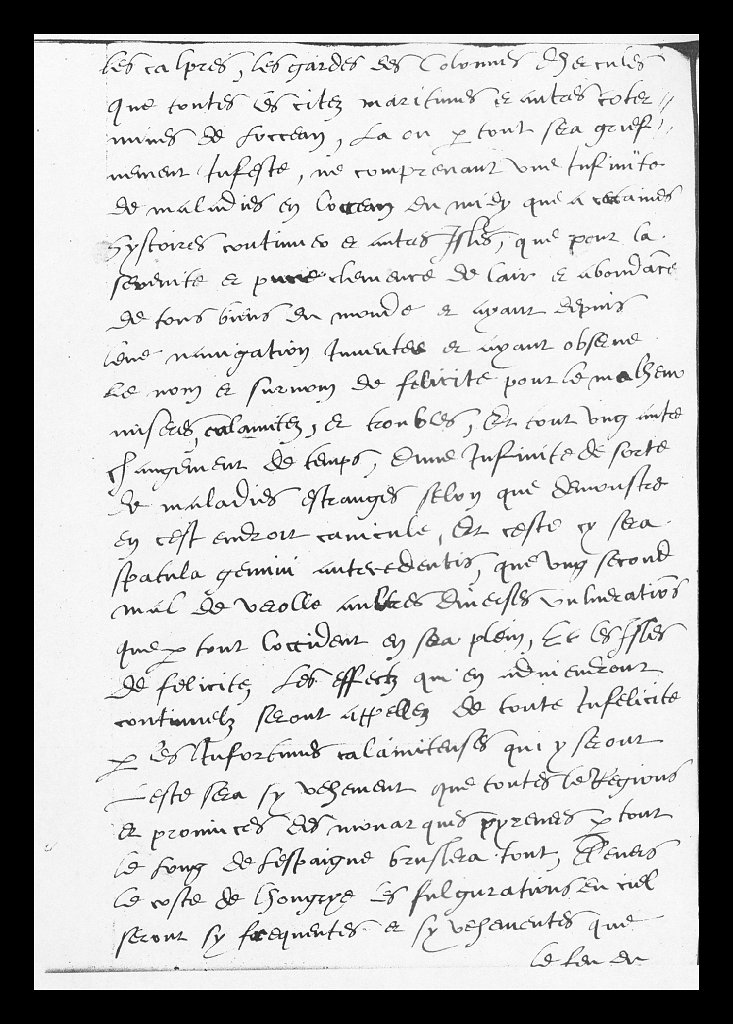 les calpres, les gardes des Colonnes dhercules
que toutes les citez maritimes et autres coter
mines de loccean, La ou p tout sera grief
nement Infeste, ne comprenant une Infinite
de maladies en loccean du midy que a certaines
hystoires continuer et autres Isles, que pour la
serenite et purie clemence de lair et abondace
de tous biens du monde et ayant depuis
leur navigation Inventee et ayant observe
Le nom et surnom de felicite pour le malheur
miseres, calamitez, et troubles, Et tout ung autre
changement de temps, dune Infinite de sorte
de maladies estranges selon que demonstre
en cest endroit canicule, Et ceste cy sera
spatula gemini antecedentis, que ung second
mal de verolle aultres diverses vulnerations
que p tout loccident en sera plein, Et les Isles
de felicitez Les effectz qui en adviendront
continuelz seront appellez de toute Infelicite
p les Infortunes calamiteuses qui y seront
Leste sera sy vehement que toutes les Regions
et provinces des monarques pyrenes p tout
le long de Lespaigne bruslera tout, Devers
le coste de hongrye les fulgurations en ciel
seront sy frequentes et sy vehementes que
le feu du